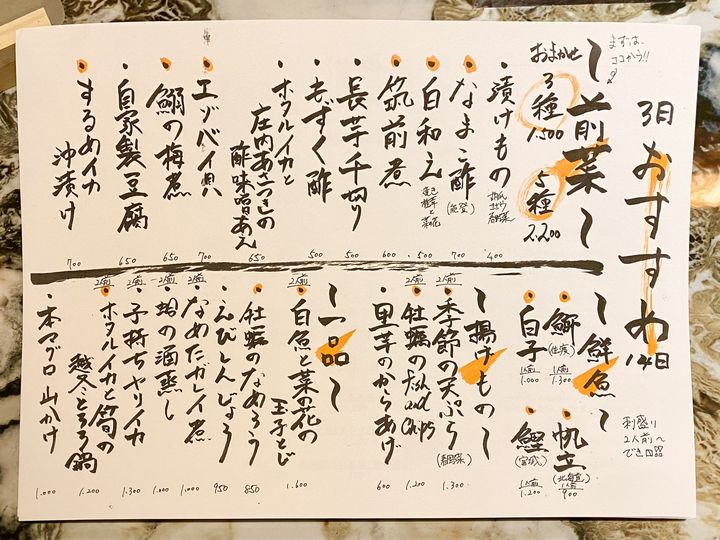 3月おすすめ14日
まずは、
ココから!!
〜前菜〜
おまかせ
3種
1.500
5種
2.200
・漬けもの
400
・なまこ酢
(能登)
700
・白和え
・筑前煮
600
・長芋千切り
500
・もずく酢
500
・ホタルイカと
庄内あさつきの
酢味噌あえ
650
・エゾバイ貝
700
・鰯の梅煮
650
・自家製豆腐
650
・するめイカ
沖漬け
700
刺盛り
2人前〜
でき〼
〜鮮魚〜
・帆立
(北海道)
1人前
900
・鰤
(佐渡)
1人前
1.300
・鰹
(宮城)
1人前
1.200
・白子
1人前
1.000
〜揚げもの〜
2人前
・季節の天ぷら
(春野菜)
1.300
2人前
・牡蠣のFish and Chips
1.200
・里芋のからあげ
600
〜一品〜
2人前
・白魚と菜の花の
玉子とじ
1.600
・牡蠣のなめろう
850
・えびしんじょう
950
2人前
・なめたガレイ煮
1.000
2人前
・蛤の酒蒸し
1.000
2人前
・子持ちヤリイカ
1.300
2人前
・ホタルイカと筍の
越冬とろろ鍋
1.200
・本マグロ山かけ
1.000